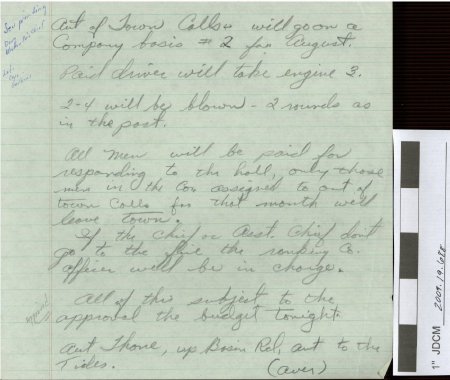 Out of Town Calls will go on a
Company basis # 2 for August.
Paid driver will take engine 3.
2-4 will be blown - 2 rounds as
in the past.
All men will be paid for
responding to the hall, only those
men in the Co. assigned to out of
town Calls for that month will
leave town.
If the chief or Asst. Chief don't
go to the fire the ranking Co.
officer will be in charge.
All of this subject to the
approval the budget tonight.
out Thone, up Basin Rd, out to the
Tides. (over)
1" JDCM
2009.19.688